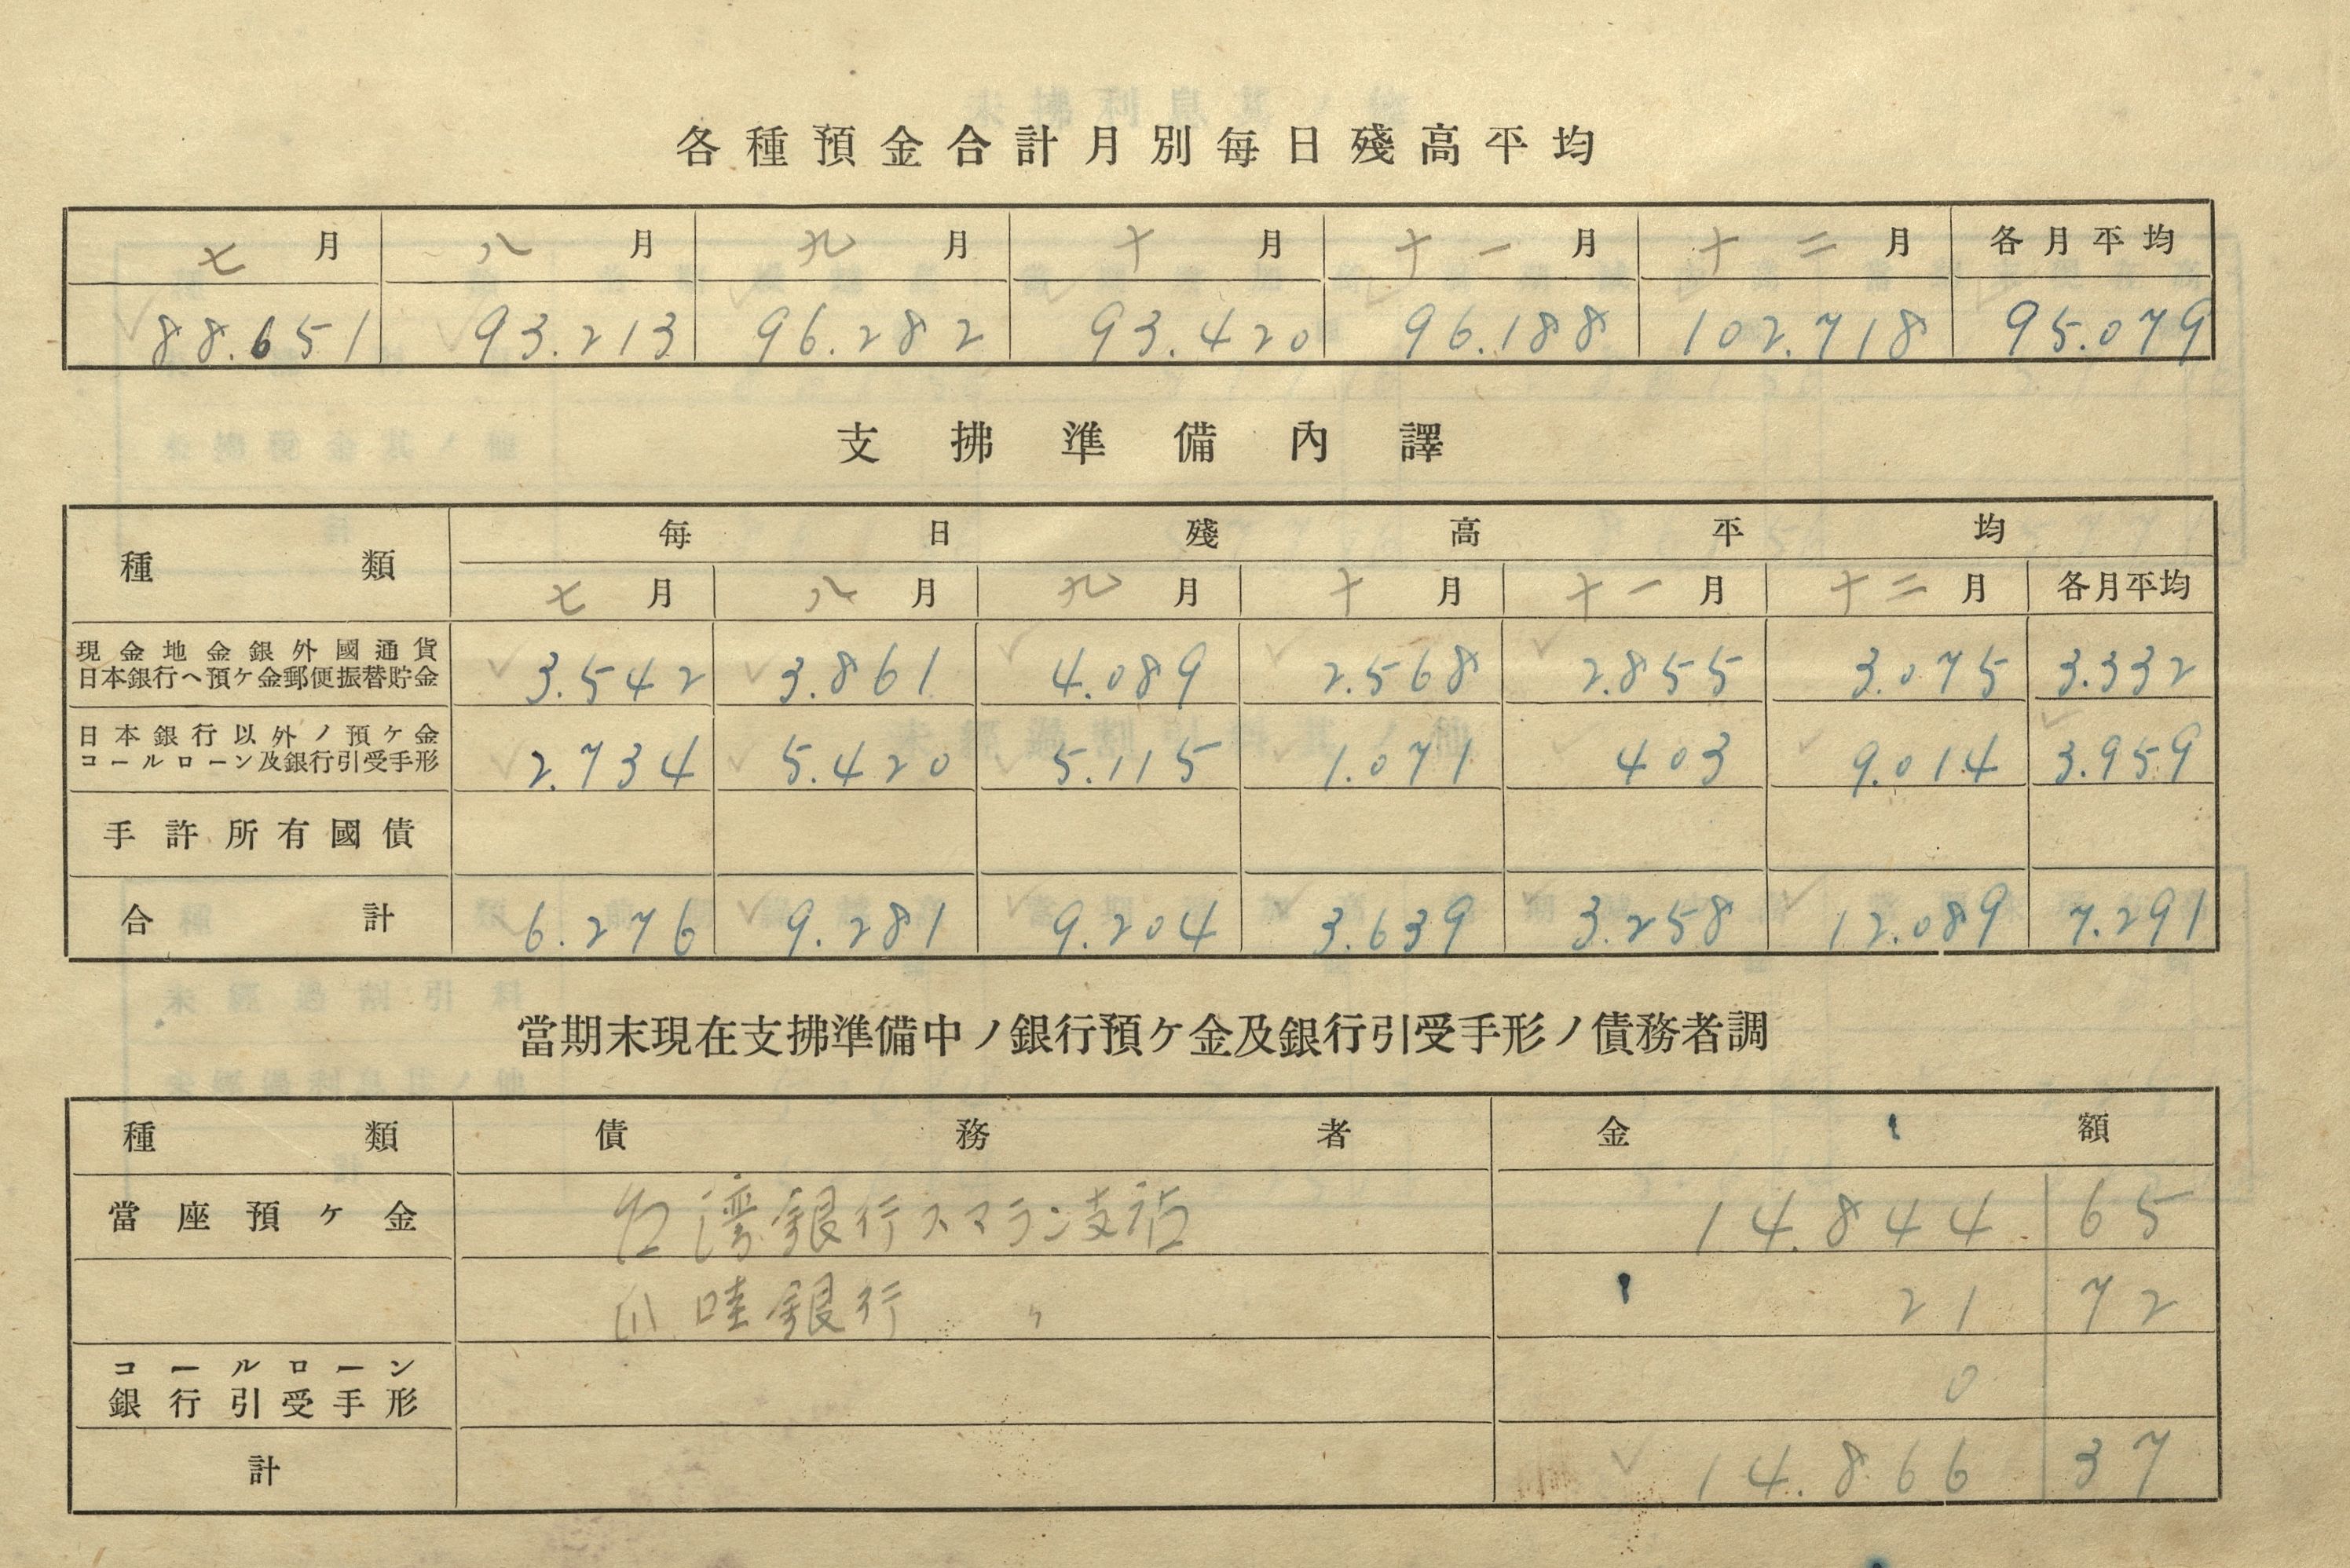 各種預金合計月別每日殘高平均
七月 八月 九月 十月 十一月 十二月 各月平均
88.651 93.213 96.282 93.420 96.188 102.718 95.079
支拂準備內譯
種類 每日殘高平均
七月 八月 九月 十月 十一月 十二月 各月平均
現金地金銀外國通貨
日本銀行ヘ預ケ金郵便振替貯金 3.542 3.861 4.089 2.568 2.855 3.075 3.332
日本銀行以外ノ預ケ金
コールローン及銀行引受手形 2.734 5.420 5.115 1.071 403 9.014 3.959
手許所有國債
合計 6.276 9.281 9.204 3.639 3.258 12.089 7.291
當期末現在支拂準備中ノ銀行預ケ金及銀行引受手形ノ債務者調
種類 債務者 金額
當座預ケ金 台湾銀行スマラン支店 14.844 65
爪哇銀行 〃 21 72
コールローン
銀行引受手形 0
計 14.866 37